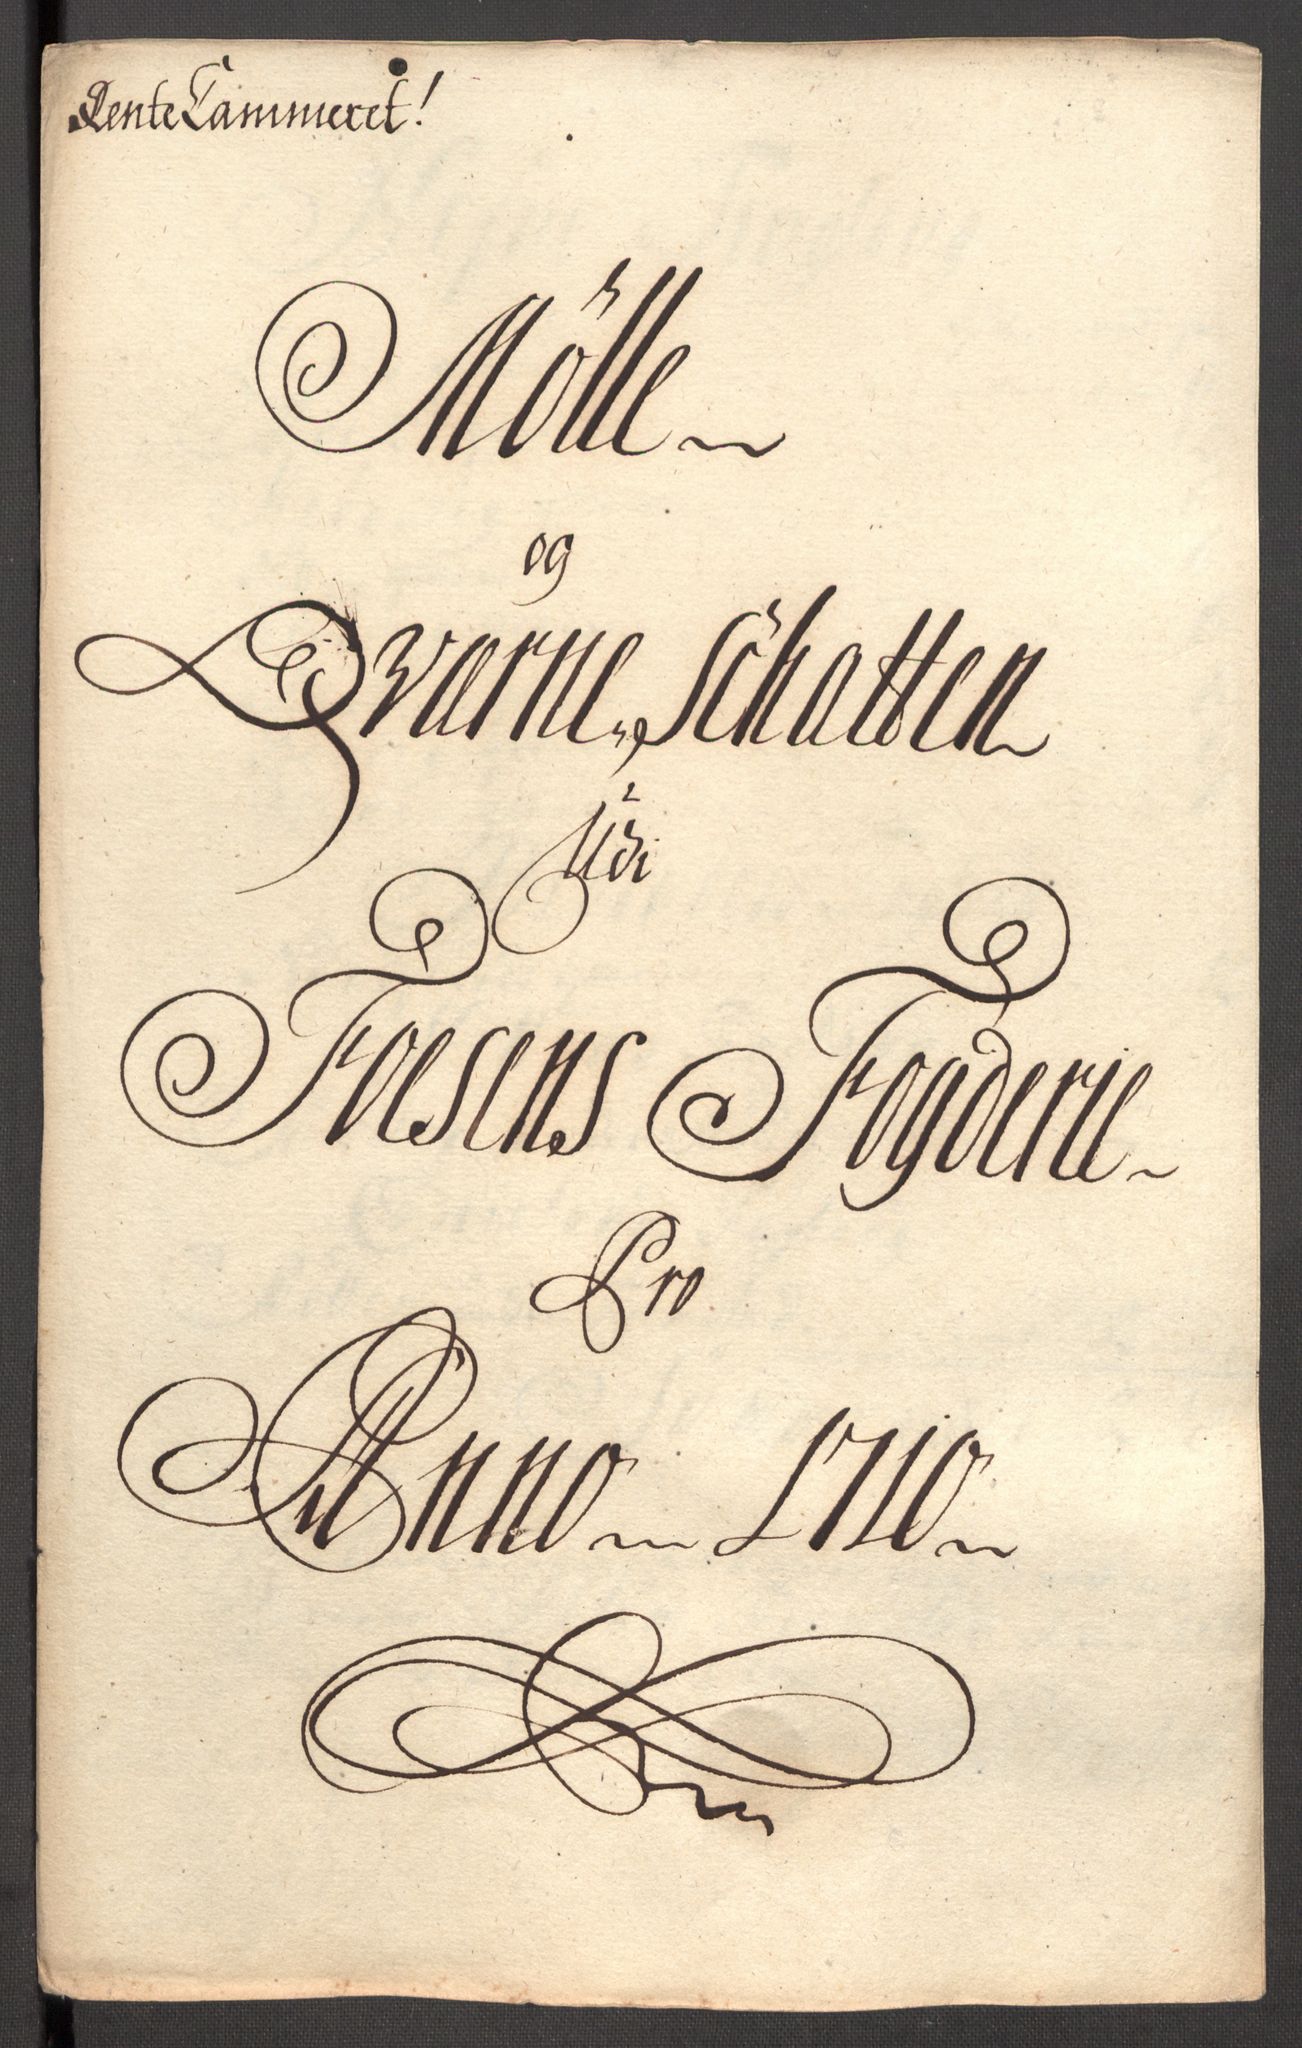 RenteCammeret!
Mölle
og
Qværne, Schatten
Udi
Foesens Fogderie
Pro
Anno 1710